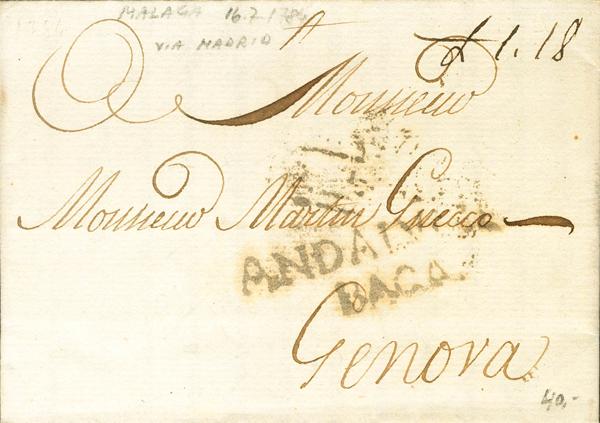 MALAGA 16.7.1784
VIA MADRID
A
£ 1.18
Monsieur
Monsieur Martin Guecco
ANDAL
BAXA
Genova
40,-